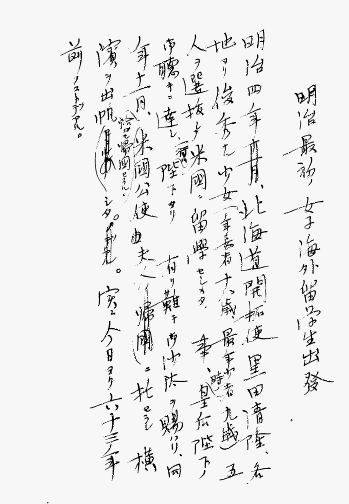 明治最初ノ女子海外留学生出發
明治四年　月、北海道開拓使黒田清隆、各
地ヨリ俊秀ナル少女（年長者十六歳最年少者九歳）五
人ヲ選抜シ米國ニ留學セシメタ　事　時ノ皇后陛下ノ
御聽ニ達シ、陛下ヨリ有リ難キ御沙汰ヲ賜ハリ、同
年十一月、米國公使　夫人ノ帰國ニ托セシ　横
濱ヲ出帆　シタ。　實ニ今日ヨリ六十三年
前ノコトデアル。